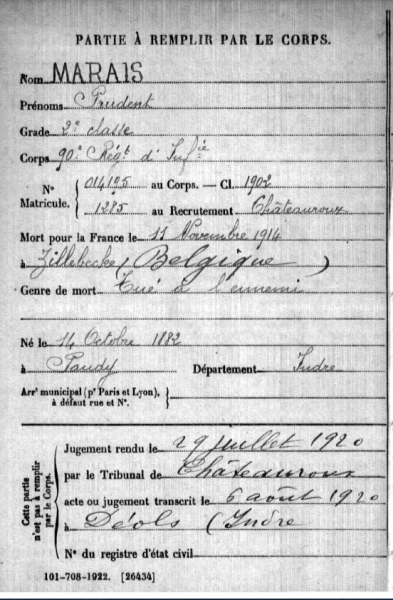 PARTIE À REMPLIR PAR LE CORPS.
Nom MARAIS
Prénoms Prudent
Grade 2e classe
Corps 90e Régt d'Infie
N° Matricule. { 014195 au Corps. — Cl. 1902
1285 au Recrutement Châteauroux
Mort pour la France le 11 Novembre 1914
à Zillebecke (Belgique)
Genre de mort Tué à l'ennemi
Né le 14 Octobre 1882
à Paudy Département Indre
Arrt municipal (pr Paris et Lyon), à défaut rue et N°. }
Cette partie n'est pas à remplir par le Corps.
Jugement rendu le 29 juillet 1920
par le Tribunal de Châteauroux
acte ou jugement transcrit le 6 août 1920
à Déols (Indre
N° du registre d'état civil
101-708-1922. [26434]